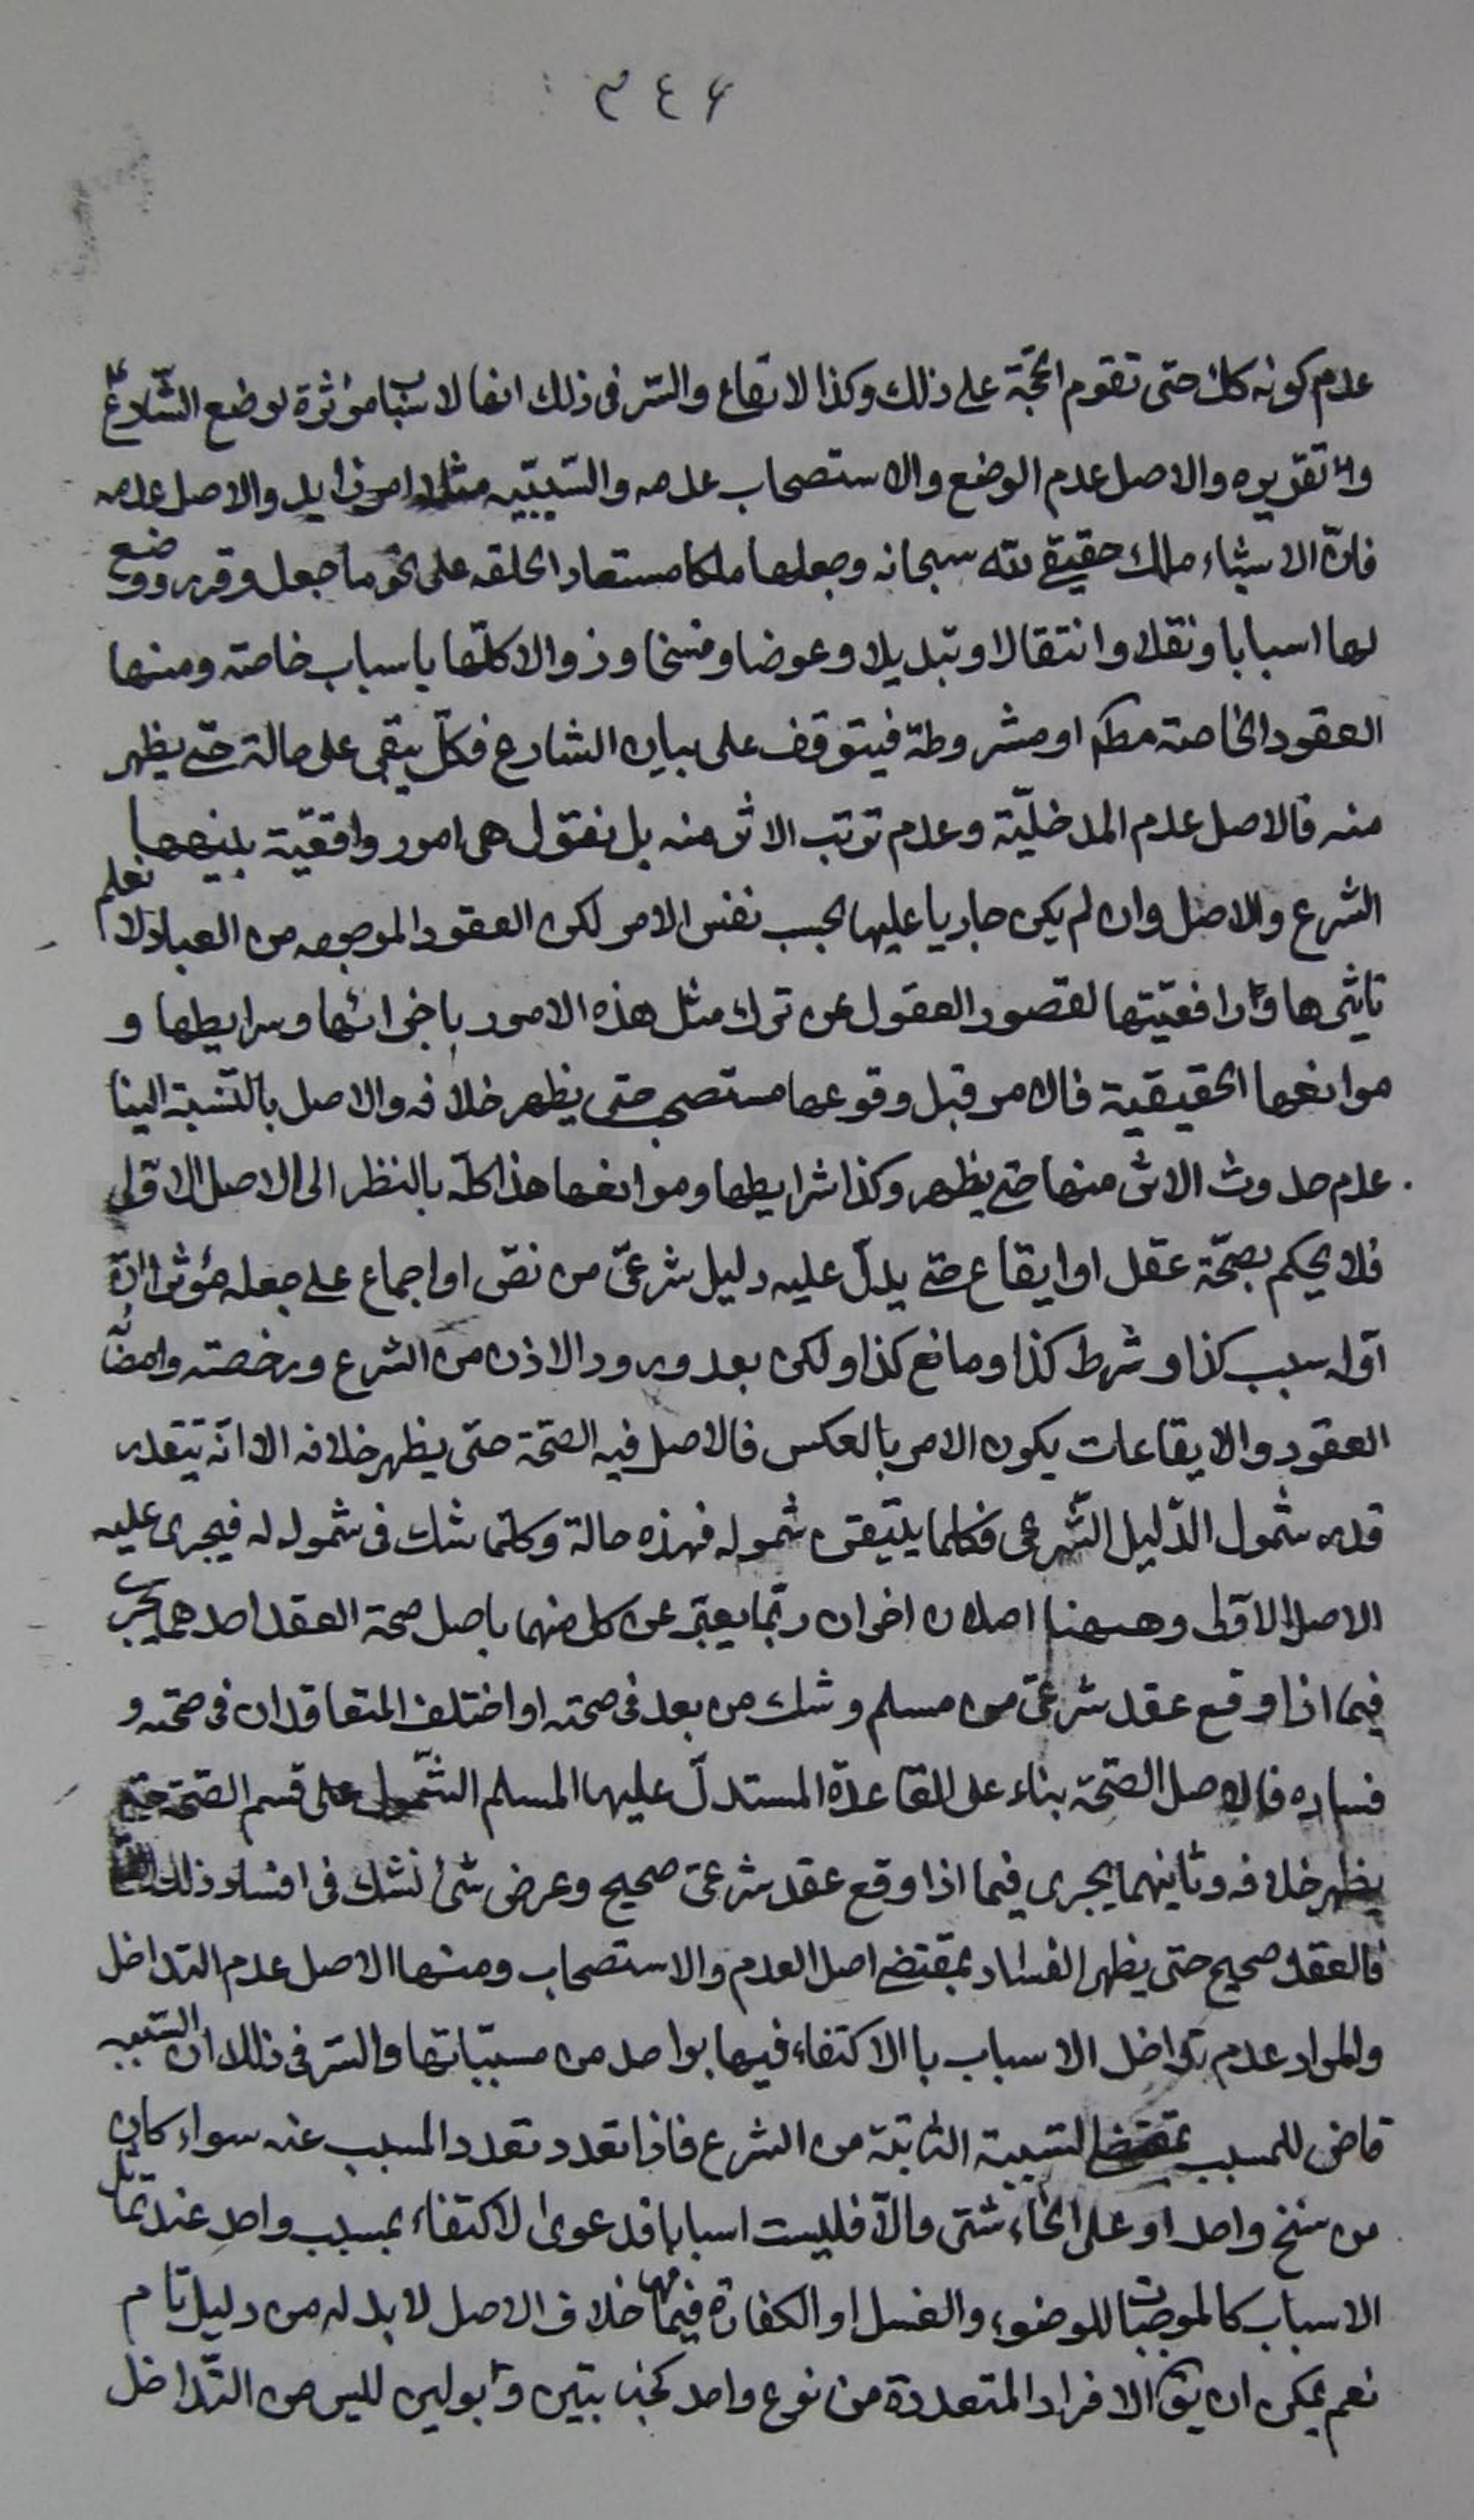 ٣٤٦
عدم كونه كك حتى تقوم الحجة على ذلك وكذا الايقاع والسّر فى ذلك انها لاسببا مؤثرة لوضع الشارع
ولا تقريره والاصل عدم الوضع والاستصحاب عدمه والسّببيّه مثلا امر زايد والاصل عدمه
فانّ الاشياء ملك حقيقى لله سبحانه وجعلها ملكا مستعارا لخلقه على نحو ما جعل وقرر ووضع
لها اسبابا ونقلا وانتقالا وتبديلا وعوضا وفسخا وزوالا كلّها باسباب خاصّه ومنها
العقود الخاصة مطلقا او مشروطة فيتوقف على بيان الشارع فكلّ يبقى على حالة حتى يظهر
منه فالاصل عدم المدخليّة وعدم ترتب الاثر منه بل نقول هى امور واقعيّة بينها
الشرع والاصل وان لم يكن جاريا عليها بحسب نفس الامر لكن العقود الموجوده من العباد لا نعلم
تاثيرها وواقعيّتها لقصور العقول عن ترك مثل هذه الامور باجزائها وشرايطها و
موانعها الحقيقية فالامر قبل وقوعها مستصحب حتى يظهر خلافه والاصل بالنّسبة الينا
عدم حدوث الاثر منها حتى يظهر وكذا شرايطها وموانعها هذا كلّه بالنظر الى الاصل الاوّلى
فلا يحكم بصحّة عقد او ايقاع حتى يدلّ عليه دليل شرعىّ من نصّ او اجماع على جعله مؤثرا
او له سبب كذا وشرط كذا ومانع كذا ولكن بعد ورود الاذن من الشرع ورخصته وامضائه
العقود والايقاعات يكون الامر بالعكس فالاصل فيه الصّحة حتى يظهر خلافه الا انّه يتقدر
قدر شمول الدّليل الشّرعى فكلما يتيقن شموله فهذه حالة وكلّما شك فى شموله له فيجرى عليه
الاصل الاوّلى وههنا اصلان اخران ربّما يعبّر عن كل منهما باصل صحة العقد احدهما يجرى
فيما اذا وقع عقد شرعىّ من مسلم وشك من بعد فى صحته او اختلف المتعاقدان فى صحّته و
فساده فالاصل الصّحة بناء على القاعدة المستدلّ عليها المسلم المحمول على قسم الصّحة حتى
يظهر خلافه وثانيهما يجرى فيما اذا وقع عقد شرعىّ صحيح وعرض شئ نشك فى افساد ذلك
فالعقد صحيح حتى يظهر الفساد بمقتضى اصل العدم والاستصحاب ومنها الاصل عدم التداخل
والمراد عدم تداخل الاسباب باالاكتفاء فيها بواحد من مسبّباتها والسّر فى ذلك ان السّببيه
قاض للمسبب بمقتضى السّببيّة الثابتة من الشرع فاذا تعدد تعدد المسبب عنه سواء كان
من سنخ واحد او على انحاء شتى والّا فليست اسبابا فدعوى الاكتفاء بمسبب واحد عند تماثل
الاسباب كالموجبات للوضوء والغسل او الكفارة فيهما خلاف الاصل لا بد له من دليل تام
نعم يمكن ان يق الافراد المتعددة من نوع واحد كجنابتين وبولين ليس من التّداخل